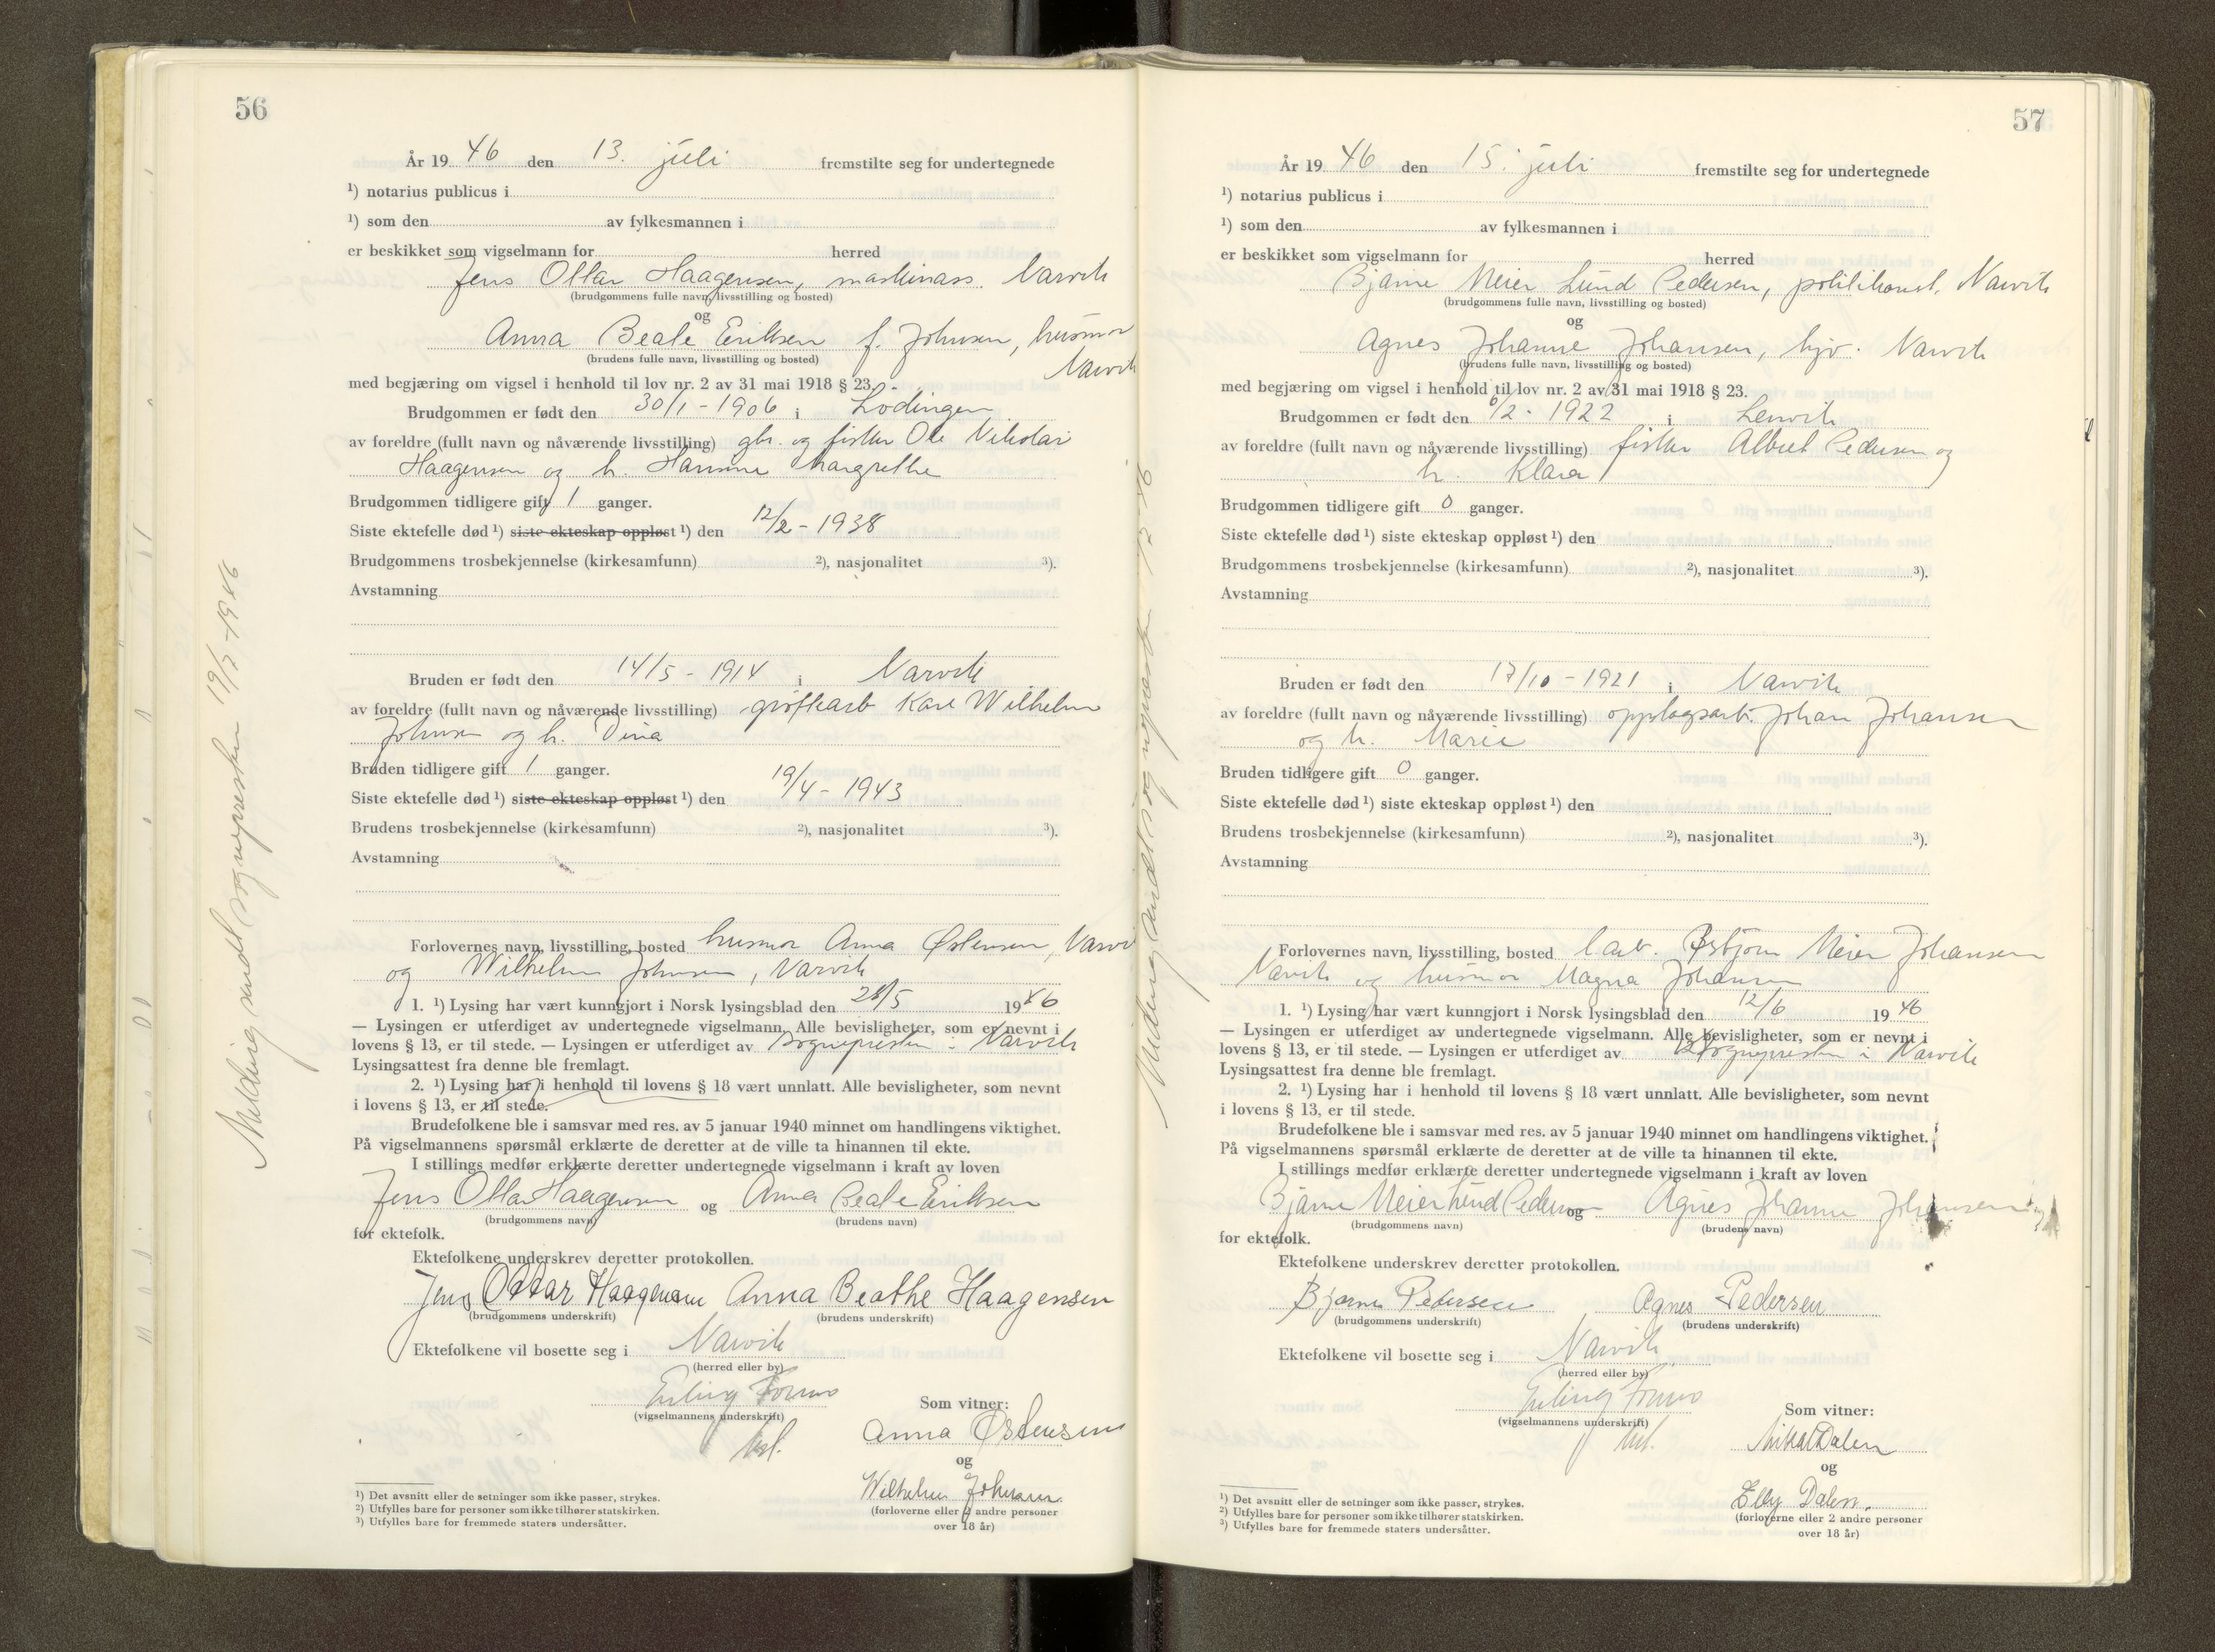 56
År 19 46 den 13. juli fremstilte seg for undertegnede
¹) notarius publicus i
¹) som den av fylkesmannen i
er beskikket som vigselmann for herred
Jens Ottar Haagensen, maskinass. Narvik
(brudgommens fulle navn, livsstilling og bosted)
og
Anna Beate Eriksen f. Johnsen, husmor
(brudens fulle navn, livsstilling og bosted)
Narvik
med begjæring om vigsel i henhold til lov nr. 2 av 31 mai 1918 § 23.
Brudgommen er født den 30/1 - 1906 i Lødingen
av foreldre (fullt navn og nåværende livsstilling) gbr. og fisker Ole Nikolai
Haagensen og h. Hansine Margrethe
Brudgommen tidligere gift 1 ganger.
Siste ektefelle død ¹) siste ekteskap oppløst ¹) den 12/2 - 1938
Brudgommens trosbekjennelse (kirkesamfunn) ²), nasjonalitet ³).
Avstamning
Bruden er født den 14/5 - 1914 i Narvik
av foreldre (fullt navn og nåværende livsstilling) grøftearb Karl Wilhelm
Johnsen og h. Dina
Bruden tidligere gift 1 ganger.
Siste ektefelle død ¹) siste ekteskap oppløst ¹) den 19/4 - 1943
Brudens trosbekjennelse (kirkesamfunn) ²), nasjonalitet ³).
Avstamning
Forlovernes navn, livsstilling, bosted husmor Anna Østensen, Narvik
og Wilhelm Johnsen, Narvik
1. ¹) Lysing har vært kunngjort i Norsk lysingsblad den 28/5 1946
— Lysingen er utferdiget av undertegnede vigselmann. Alle bevisligheter, som er nevnt i
lovens § 13, er til stede. — Lysingen er utferdiget av sognepresten i Narvik
Lysingsattest fra denne ble fremlagt.
2. ¹) Lysing har i henhold til lovens § 18 vært unnlatt. Alle bevisligheter, som nevnt
i lovens § 13, er til stede.
Brudefolkene ble i samsvar med res. av 5 januar 1940 minnet om handlingens viktighet.
På vigselmannens spørsmål erklærte de deretter at de ville ta hinannen til ekte.
I stillings medfør erklærte deretter undertegnede vigselmann i kraft av loven
Jens Ottar Haagensen og Anna Beate Eriksen
(brudgommens navn) (brudens navn)
for ektefolk.
Ektefolkene underskrev deretter protokollen.
Jens Ottar Haagensen Anna Beathe Haagensen
(brudgommens underskrift) (brudens underskrift)
Ektefolkene vil bosette seg i Narvik
(herred eller by)
Erling Formo
(vigselmannens underskrift)
Som vitner:
Anna Østensen
og
Wilhelm Johnsen
(forloverne eller 2 andre personer
over 18 år)
¹) Det avsnitt eller de setninger som ikke passer, strykes.
²) Utfylles bare for personer som ikke tilhører statskirken.
³) Utfylles bare for fremmede staters undersåtter.
Melding sendt sognepresten 19/7-1946
57
År 19 46 den 15. juli fremstilte seg for undertegnede
¹) notarius publicus i
¹) som den av fylkesmannen i
er beskikket som vigselmann for herred
Bjarne Meier Lund Pedersen, politikonst. Narvik
(brudgommens fulle navn, livsstilling og bosted)
og
Agnes Johanne Johansen, hjv. Narvik
(brudens fulle navn, livsstilling og bosted)
med begjæring om vigsel i henhold til lov nr. 2 av 31 mai 1918 § 23.
Brudgommen er født den 6/2 - 1922 i Lenvik
av foreldre (fullt navn og nåværende livsstilling) fisker Albert Pedersen og
h. Klara
Brudgommen tidligere gift 0 ganger.
Siste ektefelle død ¹) siste ekteskap oppløst ¹) den
Brudgommens trosbekjennelse (kirkesamfunn) ²), nasjonalitet ³).
Avstamning
Bruden er født den 17/10 - 1921 i Narvik
av foreldre (fullt navn og nåværende livsstilling) opplagsarb. Johan Johansen
og h. Marie
Bruden tidligere gift 0 ganger.
Siste ektefelle død ¹) siste ekteskap oppløst ¹) den
Brudens trosbekjennelse (kirkesamfunn) ²), nasjonalitet ³).
Avstamning
Forlovernes navn, livsstilling, bosted Meier Johansen
Narvik og husmor Magna Johansen
1. ¹) Lysing har vært kunngjort i Norsk lysingsblad den 12/6 19 46
— Lysingen er utferdiget av undertegnede vigselmann. Alle bevisligheter, som er nevnt i
lovens § 13, er til stede. — Lysingen er utferdiget av sognepresten i Narvik
Lysingsattest fra denne ble fremlagt.
2. ¹) Lysing har i henhold til lovens § 18 vært unnlatt. Alle bevisligheter, som nevnt
i lovens § 13, er til stede.
Brudefolkene ble i samsvar med res. av 5 januar 1940 minnet om handlingens viktighet.
På vigselmannens spørsmål erklærte de deretter at de ville ta hinannen til ekte.
I stillings medfør erklærte deretter undertegnede vigselmann i kraft av loven
Bjarne Meier Lund Pedersen og Agnes Johanne Johansen
(brudgommens navn) (brudens navn)
for ektefolk.
Ektefolkene underskrev deretter protokollen.
Bjarne Pedersen Agnes Pedersen
(brudgommens underskrift) (brudens underskrift)
Ektefolkene vil bosette seg i Narvik
(herred eller by)
Erling Formo
(vigselmannens underskrift)
Som vitner:
Dalen
og
Elly Dalen.
(forloverne eller 2 andre personer
over 18 år)
¹) Det avsnitt eller de setninger som ikke passer, strykes.
²) Utfylles bare for personer som ikke tilhører statskirken.
³) Utfylles bare for fremmede staters undersåtter.
Melding sendt sognepresten